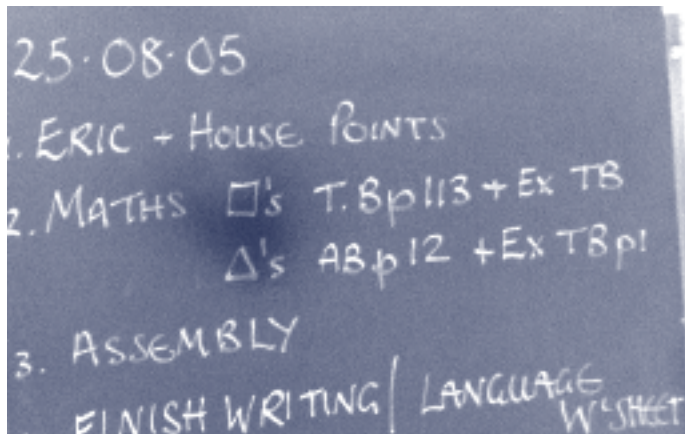 25·08·05
1. ERIC + HOUSE POINTS
2. MATHS □'s T.Bp113 + Ex TB
△'s AB.p12 + Ex TBp1
3. ASSEMBLY
FINISH WRITING/ LANGUAGE W'SHEET